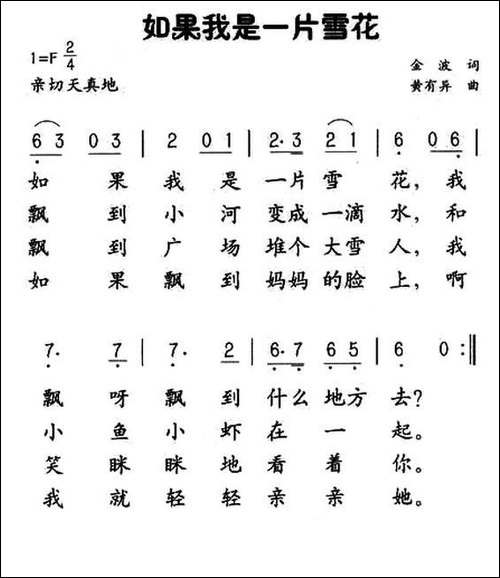 如果我是一片雪花
1=F 2/4
金波 词
亲切天真地
黄有异 曲
6 3 0 3 | 2 0 1 | 2· 3 2 1 | 6 0 6 |
如 果 我 是 一片 雪 花, 我
飘 到 小 河 变成 一滴 水, 和
飘 到 广 场 堆个 大雪 人, 我
如 果 飘 到 妈妈 的脸 上, 啊
7· 7 | 7· 2 | 6· 7 6 5 | 6 0 :||
飘 呀 飘 到 什么 地方 去?
小 鱼 小 虾 在 一 起。
笑 眯 眯 地 看 着 你。
我 就 轻 轻 亲 亲 她。